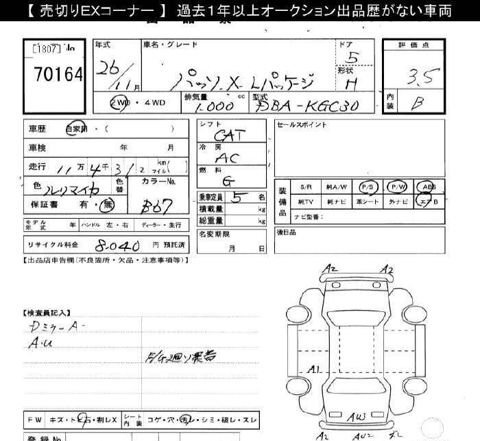 【 売切りEXコーナー 】 過去1年以上オークション出品歴がない車両
[1807] No
70164
年式
26/11月
車名・グレード
パッソ X Lパッケージ
ドア
5
形状
H
評価点
3.5
内装
B
2WD ・ 4WD
排気量
1.000 cc
型式
DBA-KGC30
車歴 自家用・( )
車検 年 月
走行 11万4千312 km/マイル
色
ルリマイカ
色替
カラーNo.
B67
保証書 有・無
モデル年式 年 ハンドル 左・右 ディーラー・並行
リサイクル料金 8.040 円 預託済
シフト
CAT
冷房
AC
燃料
G
乗車定員 5 名
積載量 kg
総重量 kg
名変期限
月 日
セールスポイント
装備品
S/R 純A/W P/S P/W ABS
純TV 純ナビ 革シート 外ナビ エアB
ナビ型番
後日品
【出品店申告欄(不良箇所・欠品・注意事項等)】
【検査員記入】
Dミラー A-
A-U
FW キズ・トビ石・割レX
コゲ・穴・汚レ・シミ・破レ・スレ
登録No
A2 A2
A1
AW3
A2 AU2